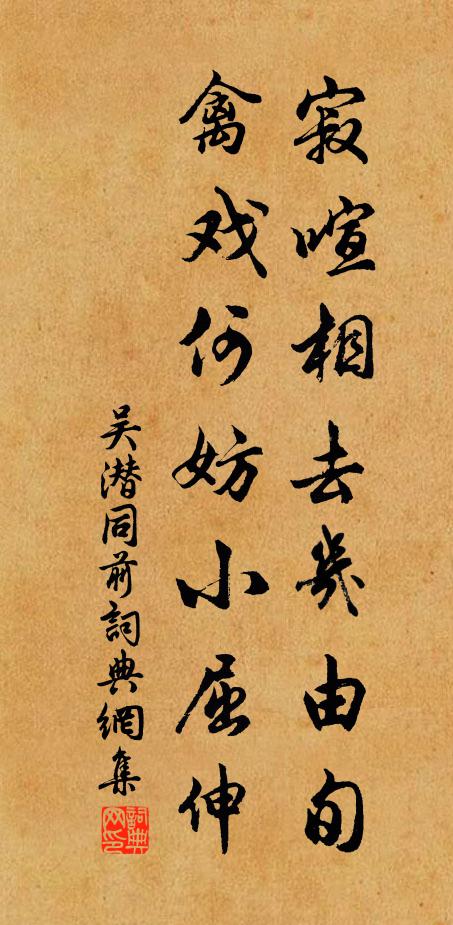 寂喧相去幾由旬
禽戏何妨小屈伸
吴潜同前詞典網集
詞典网印